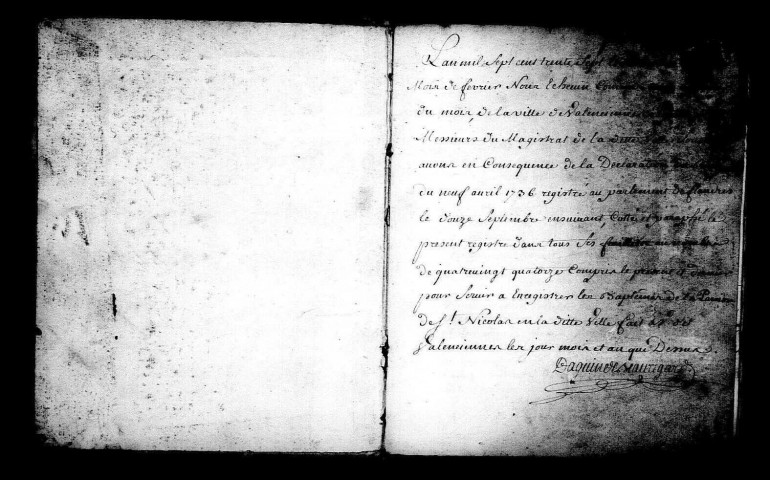 L'an mil Sept cent trente Sept le
Mois de fevrier Nous Echevin Commis
du mois, de la ville de Valenciennes
Messieurs du Magistrat de la ditte ville
avons en Consequence de la Declaration du
du neuf avril 1736 registré au parlement de flandres
le douze Septembre ensuivant, Cotté et paraphé le
present registre dans tous Ses feuillets au nombre
de quatrevingt quatorze Compris le present et dernier
pour Servir a Enregistrer les Baptemes de la Paroisse
de St. Nicolas en la ditte Ville fait as dit
Valenciennes les jour mois et an que Dessus.